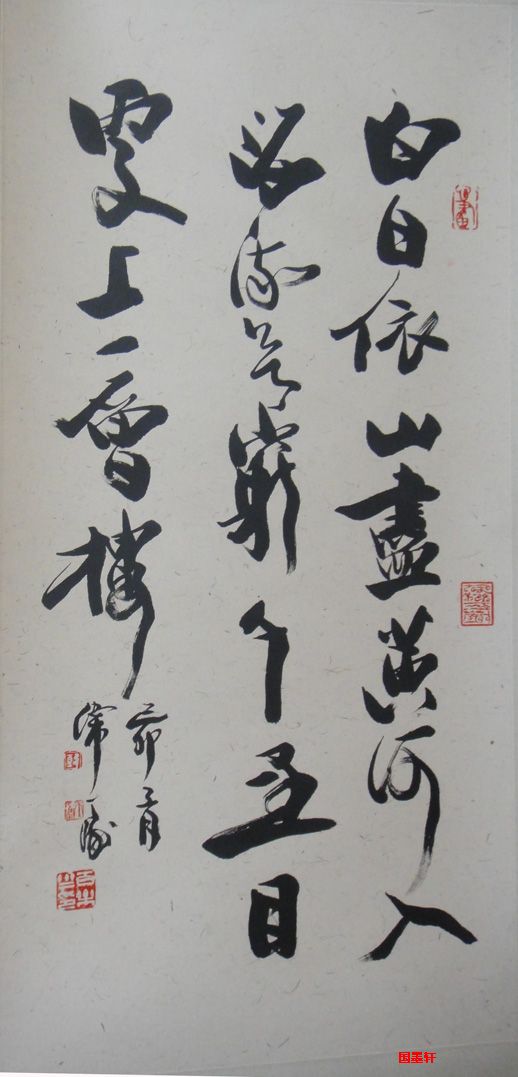 白日依山盡黄河入
海流欲窮千里目
更上一層樓
国墨轩